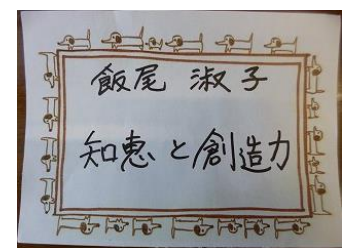 飯尾 淑子
知恵と創造力